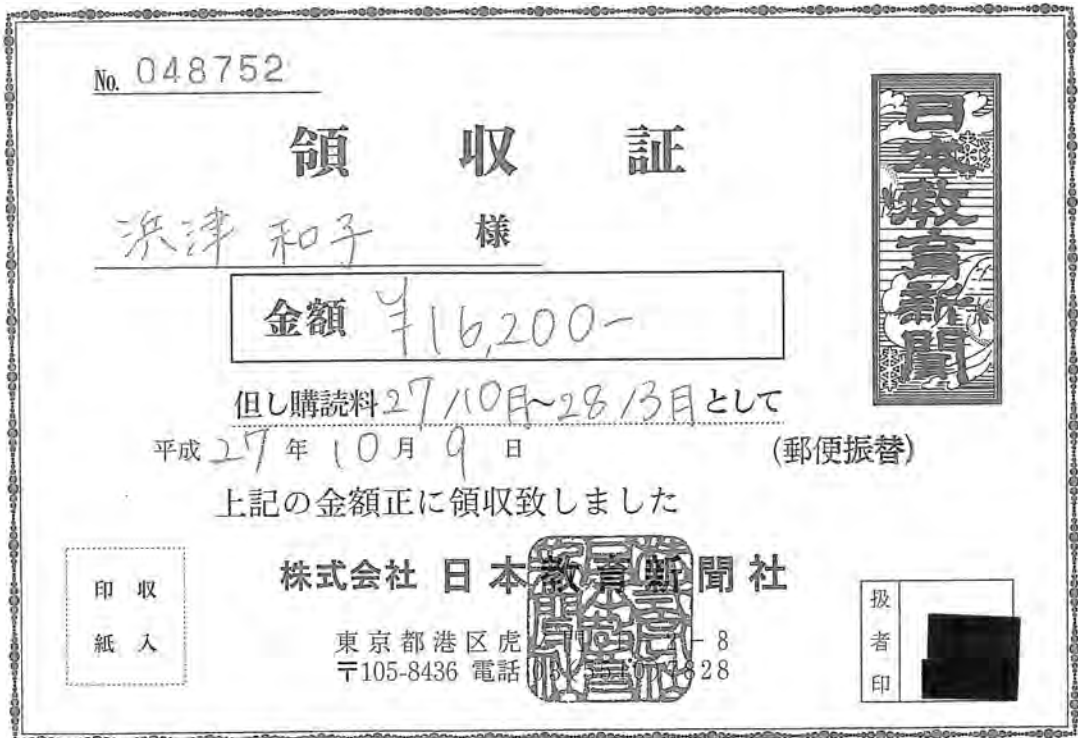 No. 048752
領収証
浜津 和子 様
金額 ¥16,200-
但し購読料27/10月~28/3月として
平成27年10月9日
(郵便振替)
上記の金額正に領収致しました
株式会社 日本教育新聞社
東京都港区虎
〒105-8436 電話
収入
印紙
扱者印
日本教育新聞